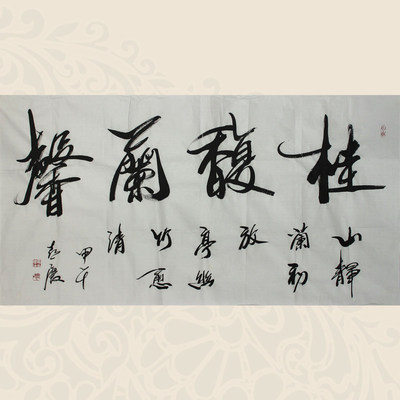 桂馥蘭馨
山靜
蘭初
放
亭幽
竹愈
清
甲午